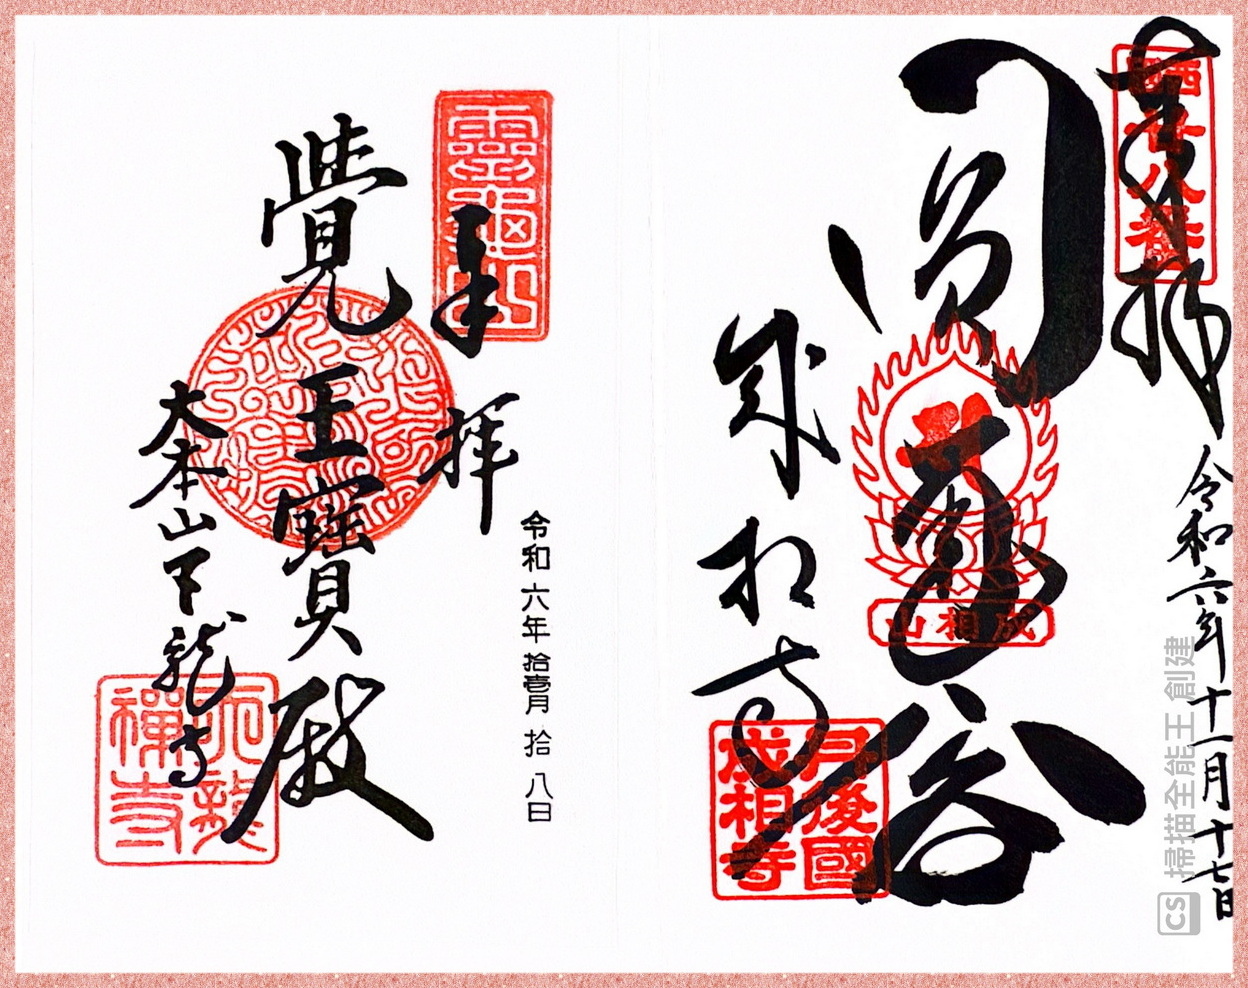 奉拝
西國廿八番
令和六年十一月十七日
成相山
成相寺
丹後國
成相寺
奉拝
靈龜山
令和六年拾壱月拾八日
覺王寶殿
大本山天龍寺
天龍
禪寺
CS 掃描全能王 創建